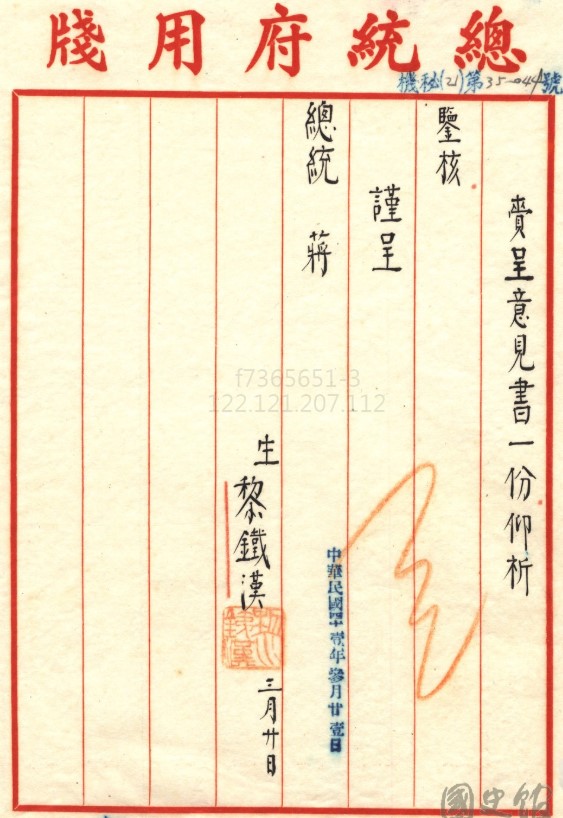 總統府用牋
機秘(2)第35-044號
賫呈意見書一份仰析
鑒核
謹呈
總統 蔣
中華民國四十壹年參月廿壹日
生 黎鐵漢
三月廿日
f7365651-3
122.121.207.112
國史館